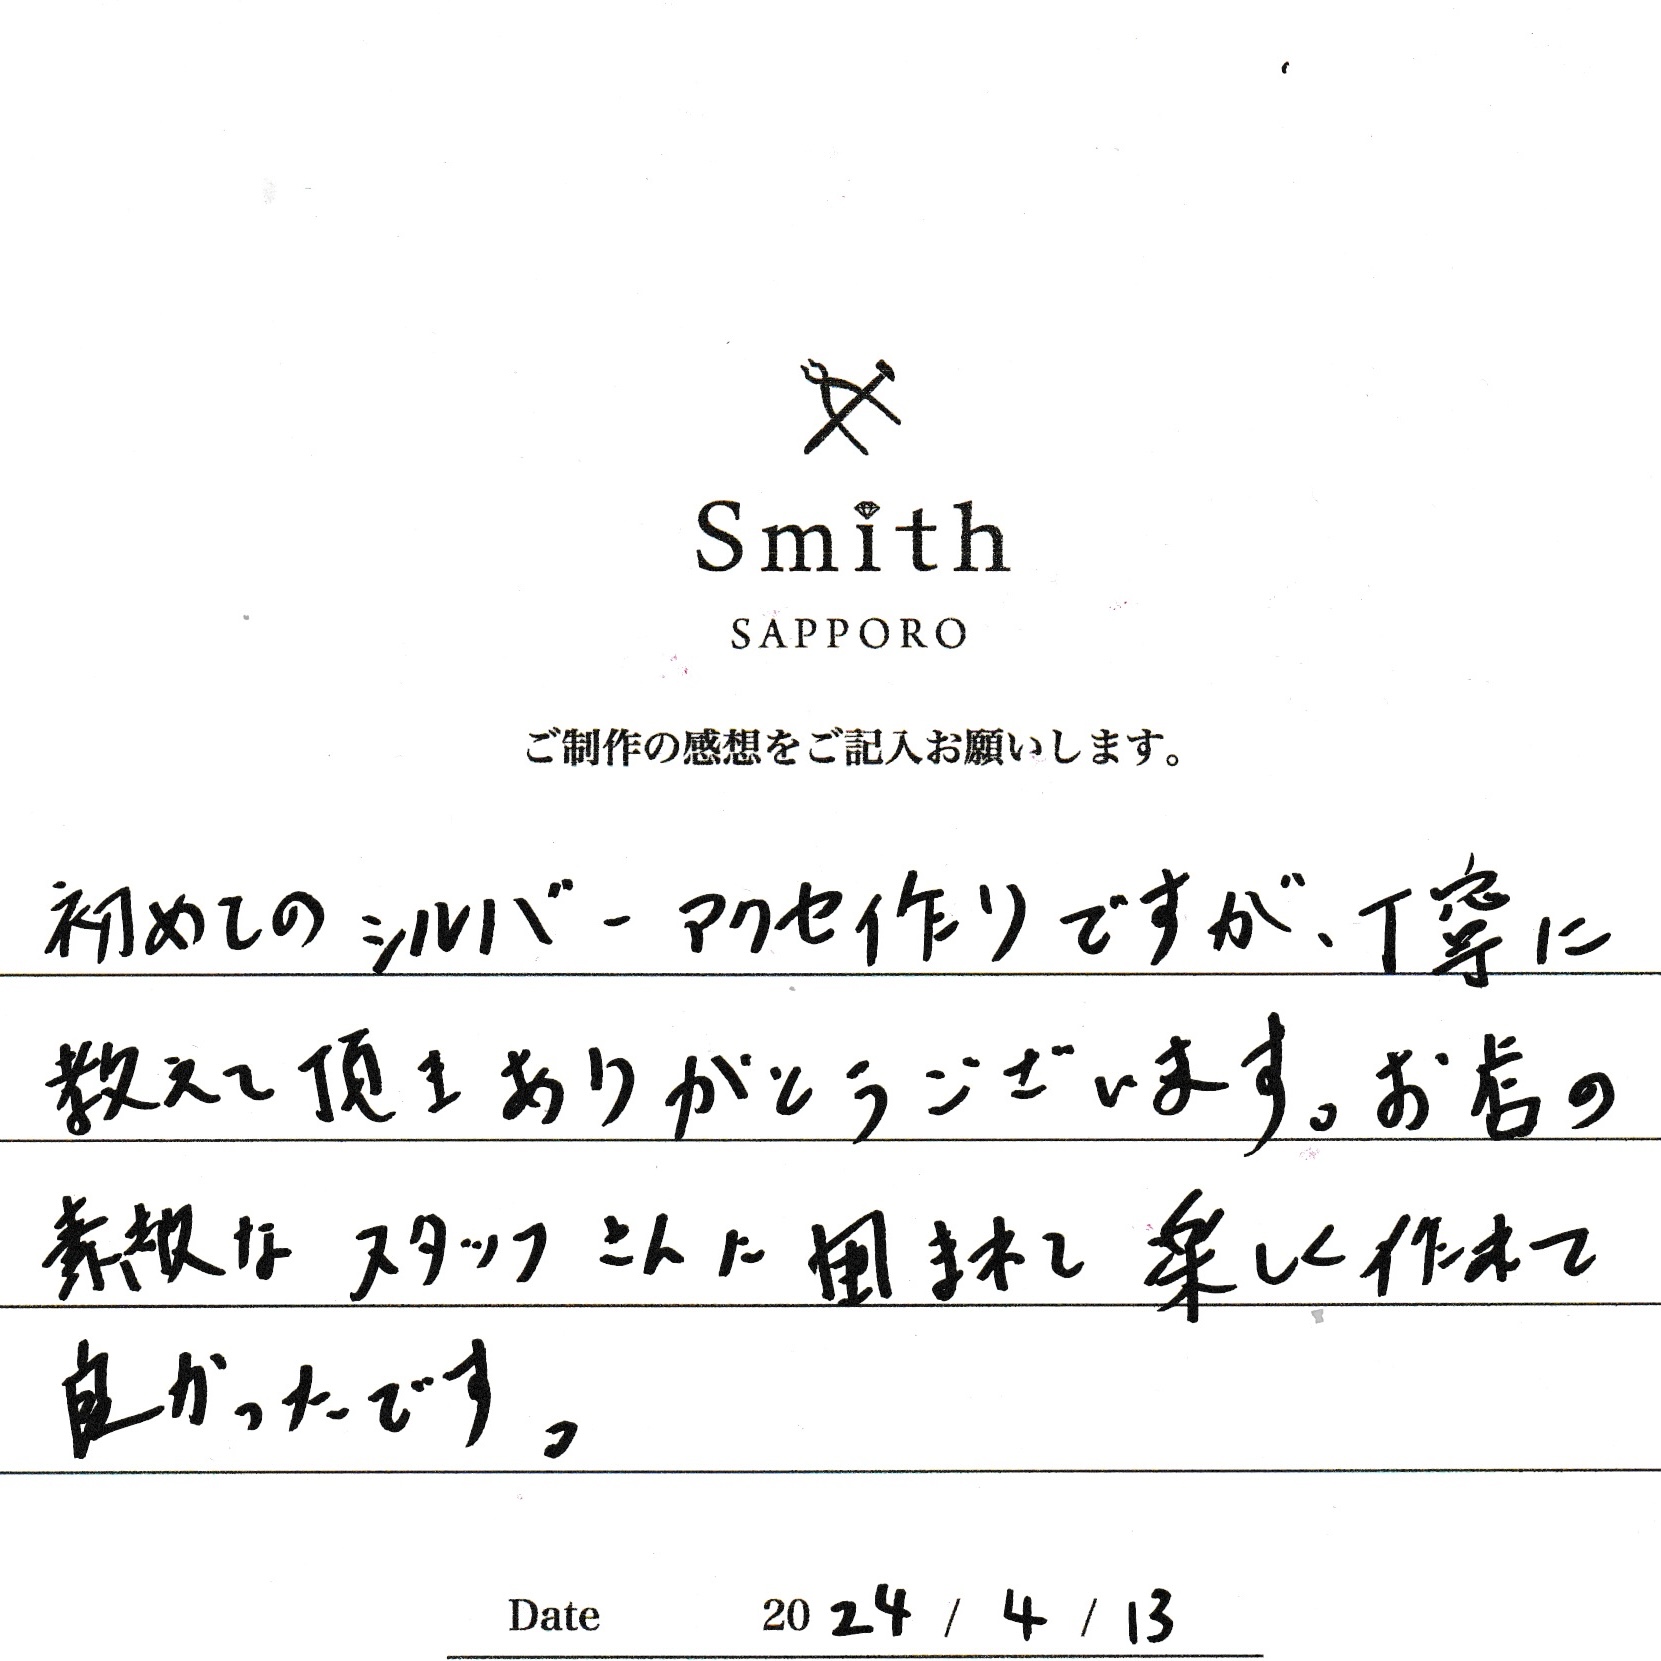 Smith
SAPPORO
ご制作の感想をご記入お願いします。
初めてのシルバーアクセ作りですが、丁寧に
教えて頂きありがとうございます。お店の
素敵なスタッフさんに囲まれて楽しく作れて
良かったです。
Date 2024 / 4 / 13